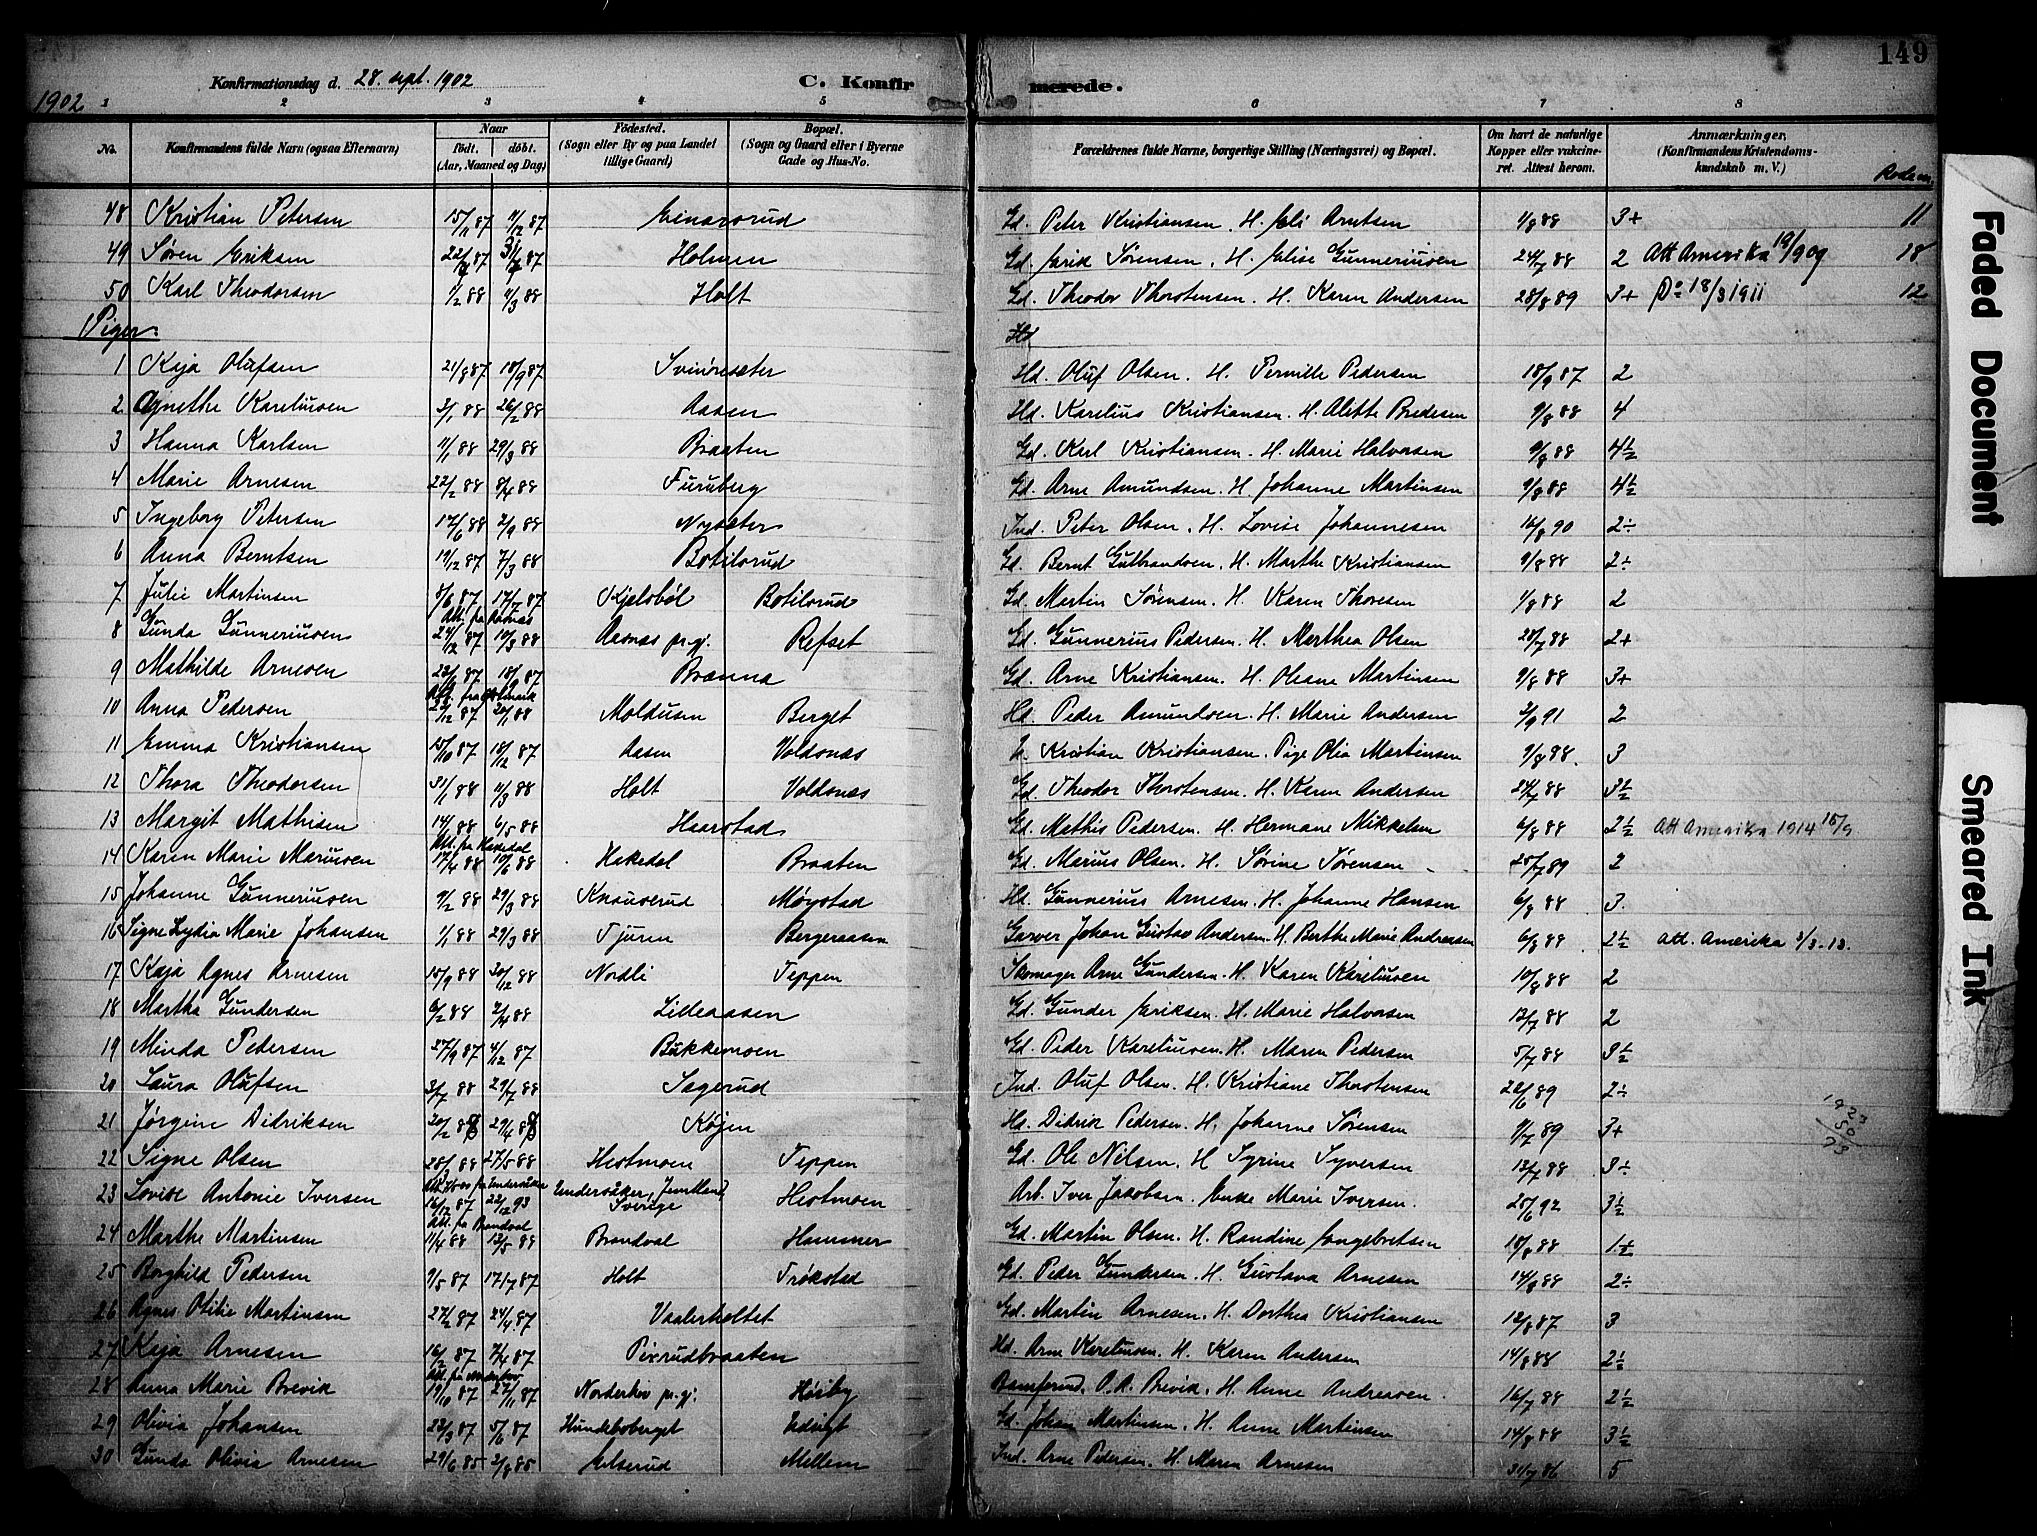 149
Konfirmationsdag d. 28. sept. 1902 C. Konfirmerede.
1902 1 2 3 4 5 6 7 8
No. Konfirmandens fulde Navn (ogsaa Efternavn) Naar født. døbt. (Aar, Maaned og Dag) Fødested. (Sogn eller By og paa Landet tillige Gaard) Bopæl. (Sogn og Gaard eller i Byerne Gade og Hus-No. Forældrenes fulde Navne, borgerlige Stilling (Næringsvei) og Bopæl. Om havt de naturlige Kopper eller vakcineret. Attest herom. Anmærkninger. (Konfirmandens Kristendomskundskab m. V.)
48 Kristian Petersen 15/11 87 11/12 87 Einarsrud Gd. Peter Kristiansen. H. Eli Arntsen 1/8 88 3+ 11
49 Søren Eriksen 22/7 87 87 Holmen Gd. Erik Sørensen. H. Elise Gunneriusen 24/7 88 2 Att Amerika 19/ 909 18
50 Karl Theodorsen 1/2 88 11/3 88 Holt Gd. Theodor Thorstensen. H. Karen Andersen 28/8 89 3+ Do 18/3 1911 12
Piger. Hd
1 Kaja Olufsen 21/8 87 18/9 87 Svinøresæter Hd. Oluf Olsen. H. Pernille Pedersen 18/9 87 2
2 Agnethe Kareliusen 3/1 88 26/2 88 Aasen Hd. Karelius Kristiansen. H. Alette Bredesen 9/8 88 4
3 Hanna Karlsen 11/1 88 29/3 88 Braaten Gd. Karl Kristiansen. H. Marie Halvorsen 9/8 88 4½
4 Marie Arnesen 22/2 88 8/4 88 Furuberg Gd. Arne Amundsen. H. Johanne Martinsen 9/8 88 4½
5 Ingeborg Petersen 17/6 88 2/9 88 Nysæter Ind. Peter Olsen. H. Lovise Johannesen 16/8 90 2÷
6 Anna Berntsen 19/12 87 7/3 88 Botilsrud Gd. Bernt Gulbrandsen. H. Marthe Kristiansen 9/8 88 2÷
7 Julie Martinsen 5/6 87 17/7 87 Kjelsbøl Botilsrud Gd. Martin Sørensen. H. Karen Thoresen 1/8 88 2
Att. fra Aasnæs
8 Gunda Gunneriusen 24/12 87 10/3 88 Aasnæs pr.gj. Refset Gd. Gunnerius Pedersen. H. Marthea Olsen 28/7 88 2+
9 Mathilde Arnesen 87 18/9 87 Brænna Gd. Arne Kristiansen. H. Oleane Martinsen 9/8 88 3+
10 Anna Pedersen 22/12 87 20/1 88 Moldusen Berget Hd Peder Amundsen. H. Marie Andersen 2/9 91 2
11 Emma Kristiansen 15/10 87 18/12 87 Aasen Voldsnæs Kristian Kristiansen. Pige Olia Martinsen 9/8 88. 3
12 Thora Theodorsen 31/1 88 11/3 88 Holt Voldsnæs Gd. Theodor Thorstensen. H. Karen Andersen 24/7 88 3½
13 Margit Mathisen 14/ 88 6/5 88 Haarstad Gd. Mathis Pedersen. H. Hermane Mikkelsen 6/8 88 2½ Att Amerika 1914 15/9
Att. fra Hakedal
14 Karen Marie Mariusen 17/4 88 10/6 88 Hakedal Braaten Gd. Marius Olsen. H. Sørine Sørensen 25/7 89 2
15 Johanne Gunneriusen 9/2 88 29/3 88 Knauserud Møystad Hd. Gunnerius Arnesen. H. Johanne Hansen 6/8 88 3.
16 Signe Lydia Marie Johansen 1/1 88 29/3 88 Tjuren Bergeraasen Garver Johan Gustav Andersen. H. Berthe Marie Andreasen 6/8 88 2½ Att. Amerika 3/3-13.
17 Kaja Agnes Arnesen 15/9 88 30/12 88 Nordli Teppen Skomager Arne Gundersen. H. Karen Kareliusen 10/8 88 2
18 Martha Gundersen 6/2 88 2/4 88 Lilleaasen Gd. Gunder Eriksen. H. Marie Halvorsen 12/7 88 2
19 Minda Petersen 27/9 87 4/12 87 Bukkemoen Gd. Peder Kareliusen. H. Maren Pedersen 5/7 88 3½
20 Laura Olufsen 3/7 88 29/7 88 Sagerud Ind. Oluf Olsen. H. Kristiane Thorstensen 22/6 89 2÷
21 Jørgine Didriksen 20/2 88 29/4 88 Køjen Hd. Didrik Pedersen. H. Johanne Sørensen 9/7 89 3+
22 Signe Olsen 25/3 88 27/5 88 Hestmoen Teppen Gd. Ole Nilsen. H Syrine Syversen 12/7 88 3÷
23 Lovise Antonie Iversen 16/12 87 22/12 93 Undersåker, Jemtland, Sverige Hestmoen Arb. Iver Jakobsen. Enke Marie Iversen. 25/6 92 3½
Att. fra Brandval
24 Marthe Martinsen 11/4 88 13/5 88 Brandval Hammer Gd. Martin Olsen. H. Randine Engebretsen 18/8 88 1½
25 Borghild Pedersen 9/5 87 17/7 87 Holt Trøkstad Gd. Peder Gundersen. H. Gustava Arnesen 14/8 88 2÷
26 Agnes Otilie Martinsen 27/2 87 24/4 87 Vaalerholtet Gd. Martin Arnesen. H. Dorthea Kristiansen 12/8 87 3
27 Kaja Arnesen 16/2 87 7/4 87 Pisrudbraaten Hd. Arne Kareliusen. H. Karen Andersen 14/8 88 2½
28 Anna Marie Brevik 19/10 87 27/11 87 Norderhov pr.gj. Høsby O. A. Brevik. H. Anne Andreasen 16/7 88 2½
29 Olivia Johansen 23/3 87 5/6 87 Hundeboberget Gd. Johan Martinsen. H. Anne Martinsen 14/8 88 3½
30 Gunda Olivia Arnesen 29/6 85 2/8 85 Elserud Mellem Ind. Arne Pedersen. H. Maren Arnesen 31/7 86 5
1823
50
73
Faded Document
Smeared Ink